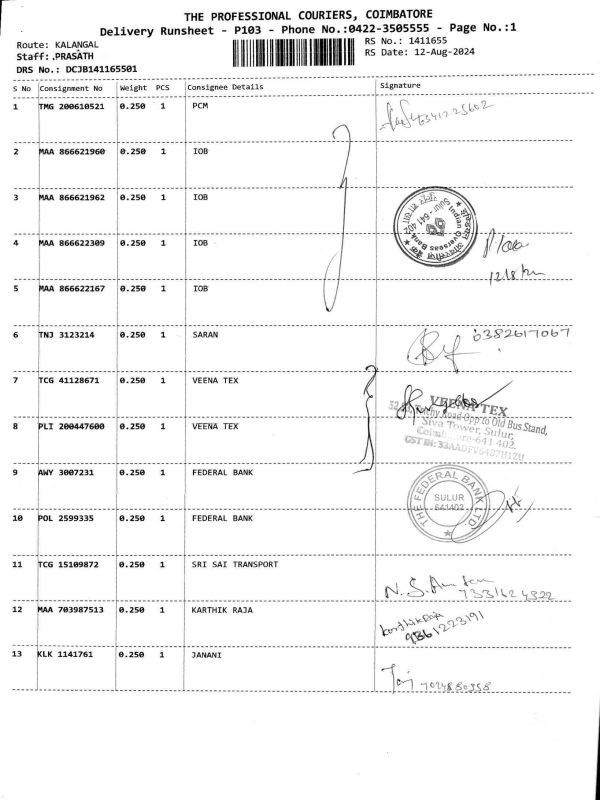 THE PROFESSIONAL COURIERS, COIMBATORE
Delivery Runsheet - P103 - Phone No.:0422-3505555 - Page No.:1
Route: KALANGAL
RS No.: 1411655
Staff:.PRASATH
RS Date: 12-Aug-2024
DRS No.: DCJB141165501
S No Consignment No Weight PCS Consignee Details Signature
1 TMG 200610521 0.250 1 PCM
2 MAA 866621960 0.250 1 IOB
3 MAA 866621962 0.250 1 IOB
Indian Overseas Bank
Sulur - 641 402
4 MAA 866622309 0.250 1 IOB
5 MAA 866622167 0.250 1 IOB
6 TNJ 3123214 0.250 1 SARAN 6382617067
7 TCG 41128671 0.250 1 VEENA TEX
VEENA TEX
Trichy Road Opp to Old Bus Stand,
8 PLI 200447600 0.250 1 VEENA TEX
Siva Tower, Sulur,
Coimbatore-641 402.
9 AWY 3007231 0.250 1 FEDERAL BANK
THE FEDERAL BANK LTD.
SULUR
641402
10 POL 2599335 0.250 1 FEDERAL BANK
11 TCG 15109872 0.250 1 SRI SAI TRANSPORT
12 MAA 703987513 0.250 1 KARTHIK RAJA
karthikRaja
9361223191
13 KLK 1141761 0.250 1 JANANI